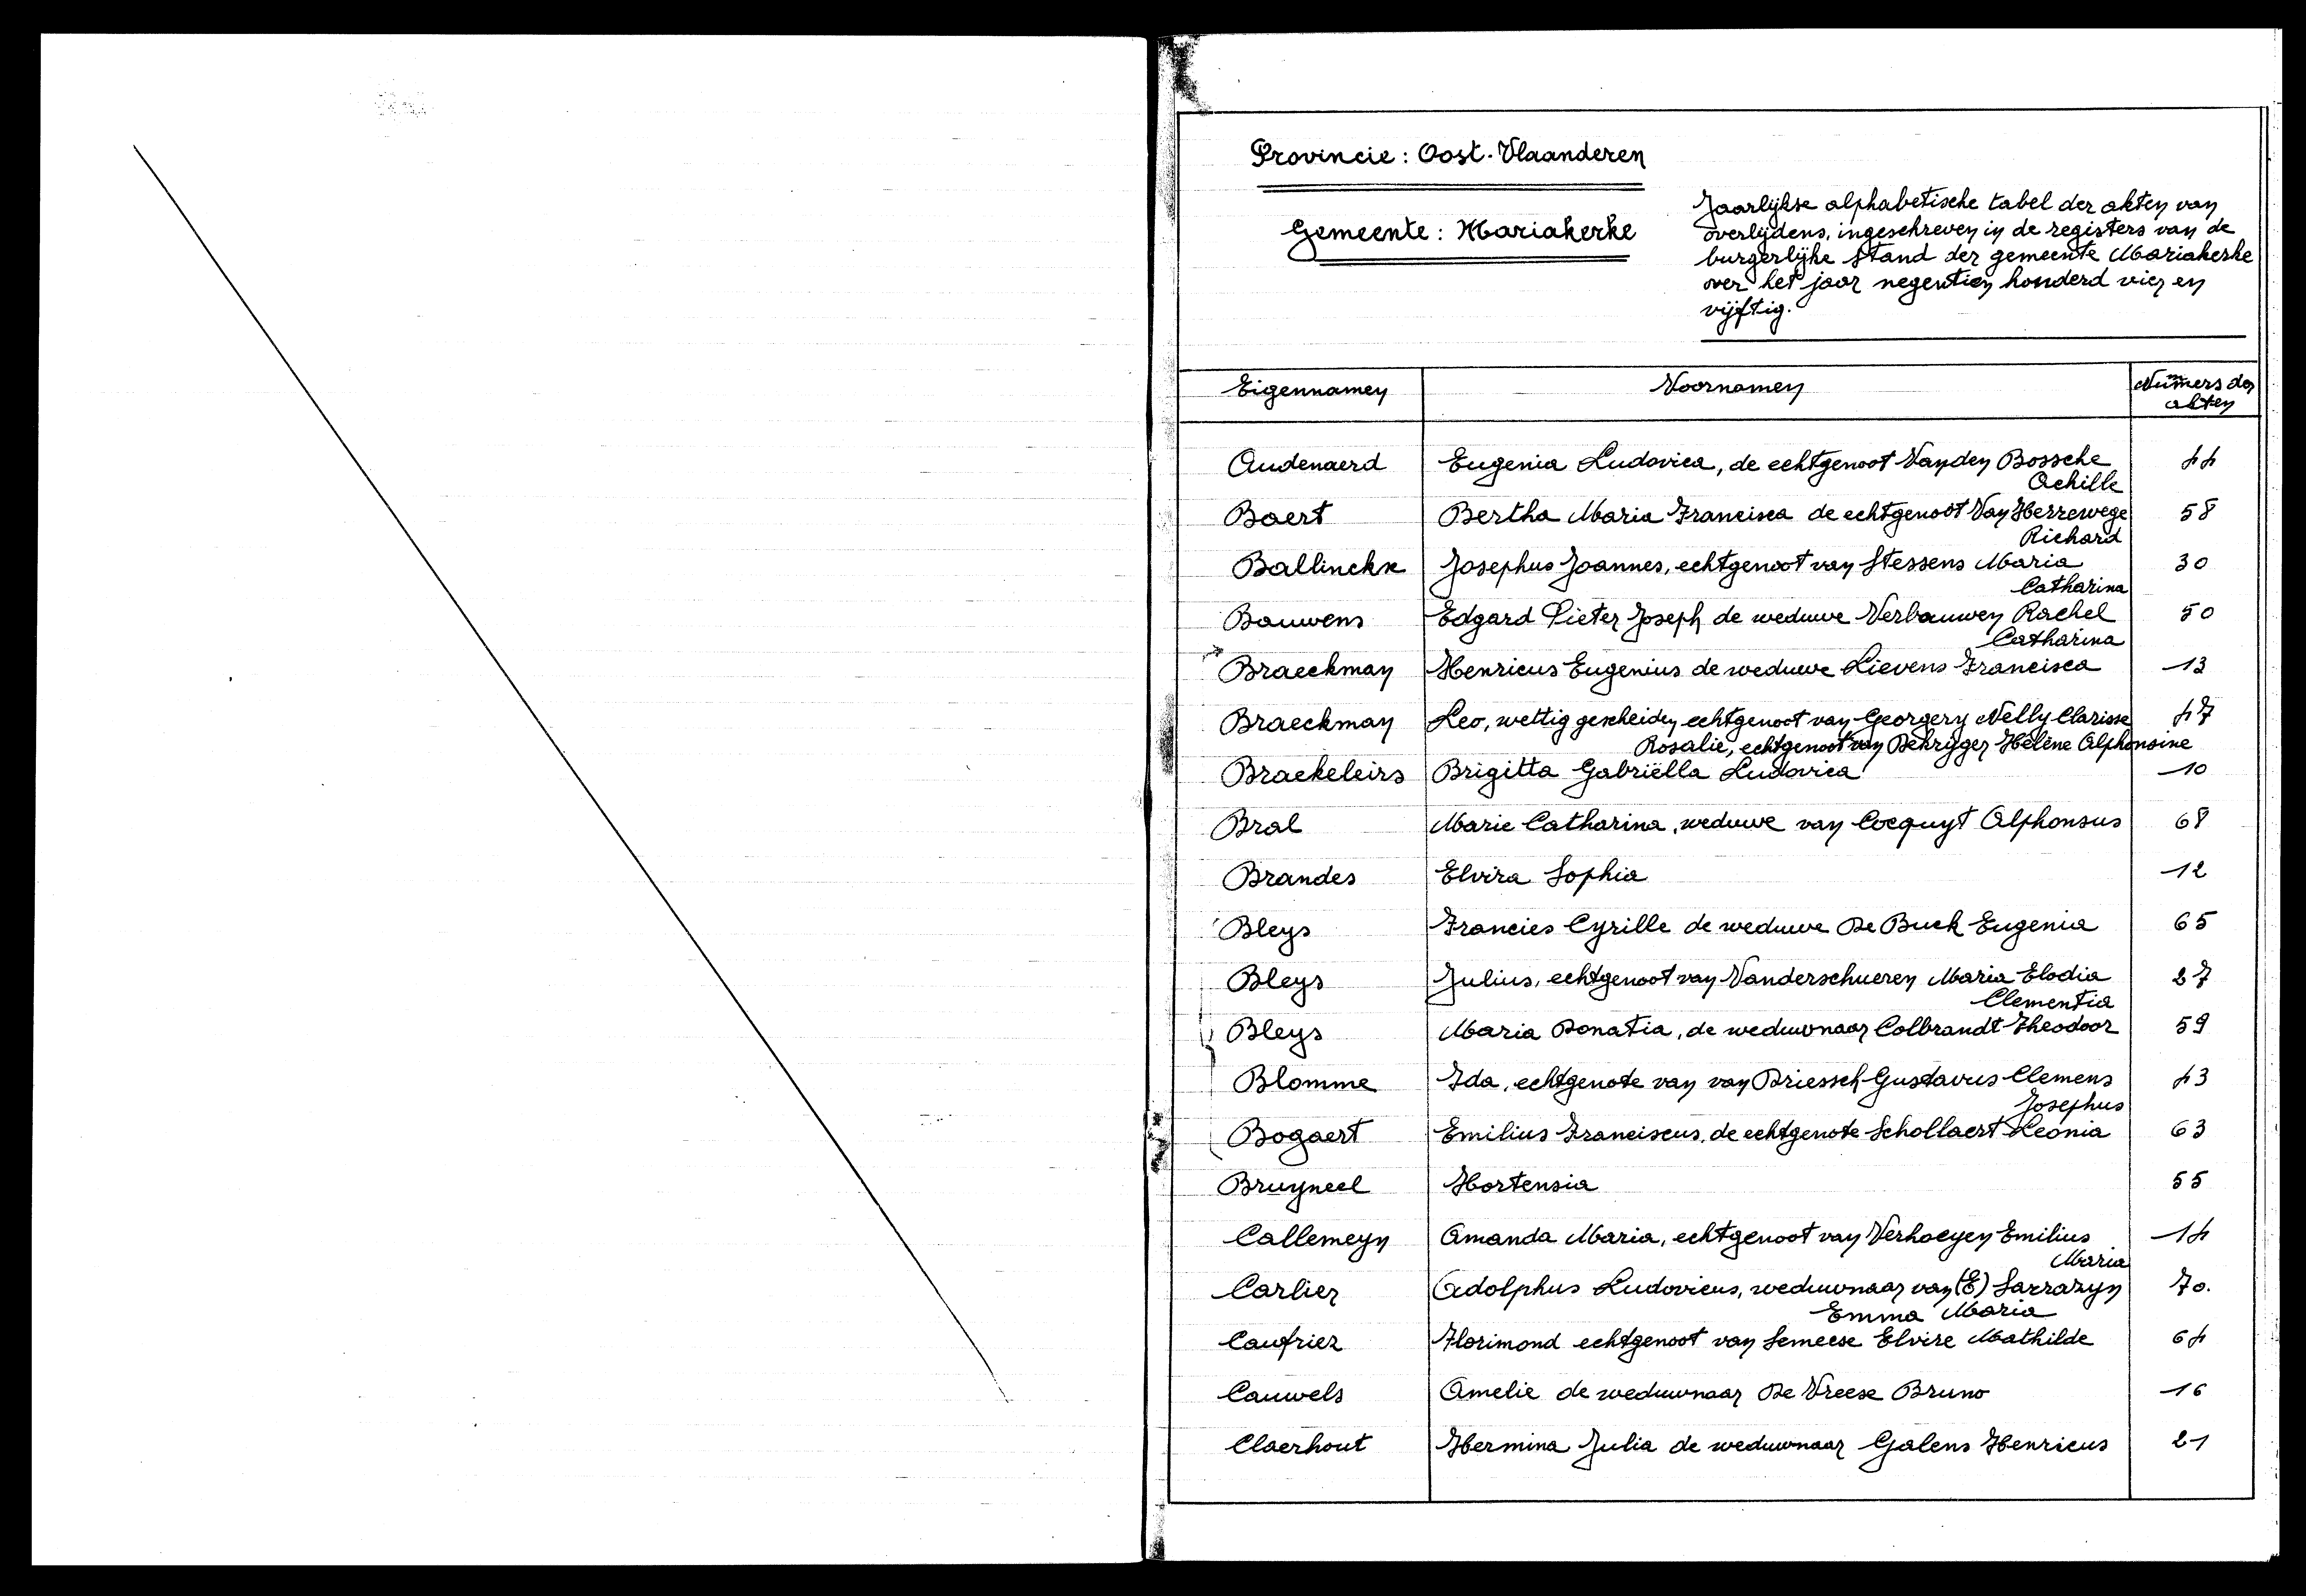 Provincie: Oost-Vlaanderen
Gemeente: Mariakerke
Jaarlijkse alphabetische tabel der akten van
overlijdens, ingeschreven in de registers van de
burgerlijke stand der gemeente Mariakerke
over het jaar negentien honderd vier en
vijftig.
Eigennamen Voornamen Numers der
akten
Audenaerd Eugenia Ludovica, de echtgenoot Vanden Bossche 44
Achille
Baert Bertha Maria Francisca de echtgenoot Van Herrewege 58
Richard
Ballinckx Josephus Joannes, echtgenoot van Stessens Maria 30
Catharina
Bauwens Edgard Pieter Joseph de weduwe Verbauwen Rachel 50
Catharina
Braeckman Henricus Eugenius de weduwe Lievens Francisca 13
Braeckman Leo, wettig gescheiden echtgenoot van Georgery Nelly Clarisse 47
Rosalie, echtgenoot van Dekrijger Hélène Alphonsine
Braekeleirs Brigitta Gabriëlla Ludovica 10
Bral Marie Catharina, weduwe van Cocquyt Alphonsus 68
Brandes Elvira Sophia 12
Bleys Francies Cyrille de weduwe De Buck Eugenia 65
Bleys Julius, echtgenoot van Vanderschueren Maria Elodia 27
Clementia
Bleys Maria Donatia, de weduwnaar Colbrandt Theodoor 59
Blomme Ida, echtgenote van van Driessch Gustavus Clemens 43
Josephus
Bogaert Emilius Franciscus, de echtgenote Schollaert Leonia 63
Bruyneel Hortensia 55
Callemeyn Amanda Maria, echtgenoot van Verhoeyen Emilius 14
Maria
Carlier Adolphus Ludovicus, weduwnaar van (E) Sarrazyn 70.
Emma Maria
Caufriez Florimond echtgenoot van Semeese Elvire Mathilde 64
Cauwels Amelie de weduwnaar De Vreese Bruno 16
Claerhout Hermina Julia de weduwnaar Galens Henricus 21